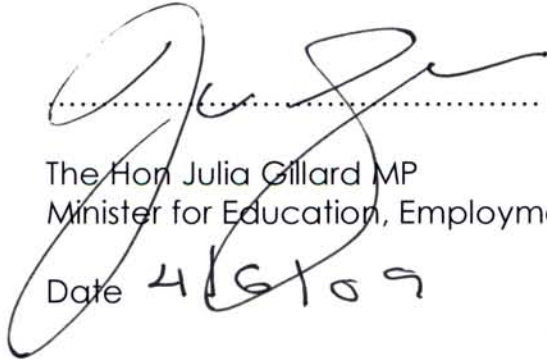 The Hon Julia Gillard MP
Minister for Education, Employme
Date 4/6/09